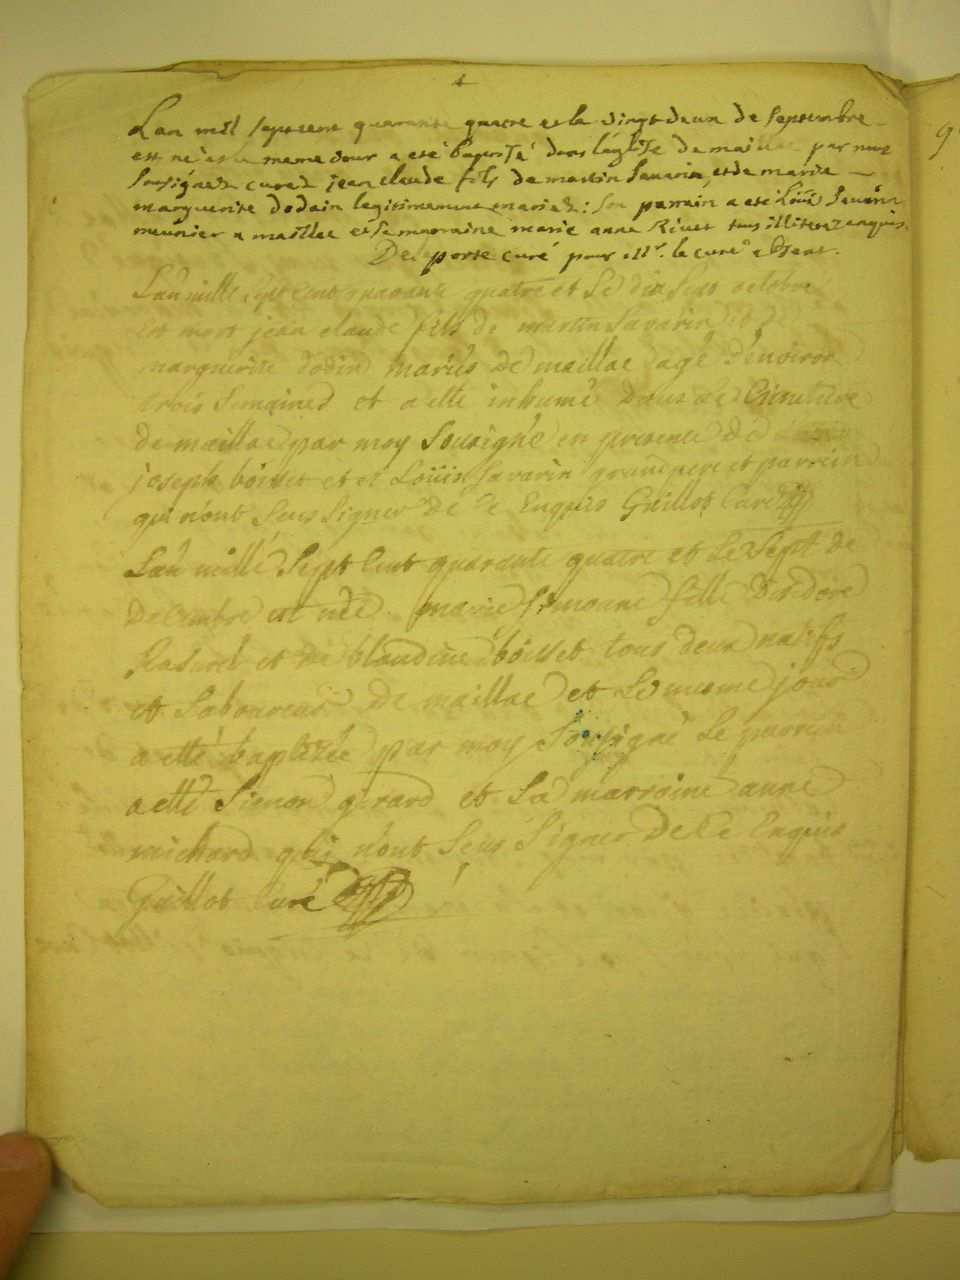 4
Lan mil septcent quarante quatre et le vingt deux de septembre
est né et le meme jour a eté baptisé dans léglise de maillac par nous
soussignez curez jean claude fils de martin Savarin, et de marie
marguerite dodain legitimement mariez: son parrain a eté Loüis Savarin
meunier a maillac et sa marraine marie anne Rivet tous illiterez enquis.
Desporte curé pour Mr. le curé absent.
Lan mille sept cent quarante quatre et Le dix sept octobre
est mort jean claude fils de martin Savarin et de
marguerite dodin mariés de maillac agé d'environ
trois Semaines et a etté inhumé dans le Cimetiere
de maillac par moy Sousigné en presence de
joseph boisset et et Loüis Savarin grand pere et parrein
qui n'ont Seus Signer de ce Enquis Guillot Curé
Lan mille Sept Cent quarante quatre et Le Sept de
Decembre est née marie Simonne fille
et de blandine boisset tous deux natifs
et Laboureurs de maillac et Le meme jour
a etté baptisée par moy Sousigné Le parrein
a etté Simon girard et La marroine anne
michard qui n'ont Seus Signer De Ce Enquis
Guillot Curé
9